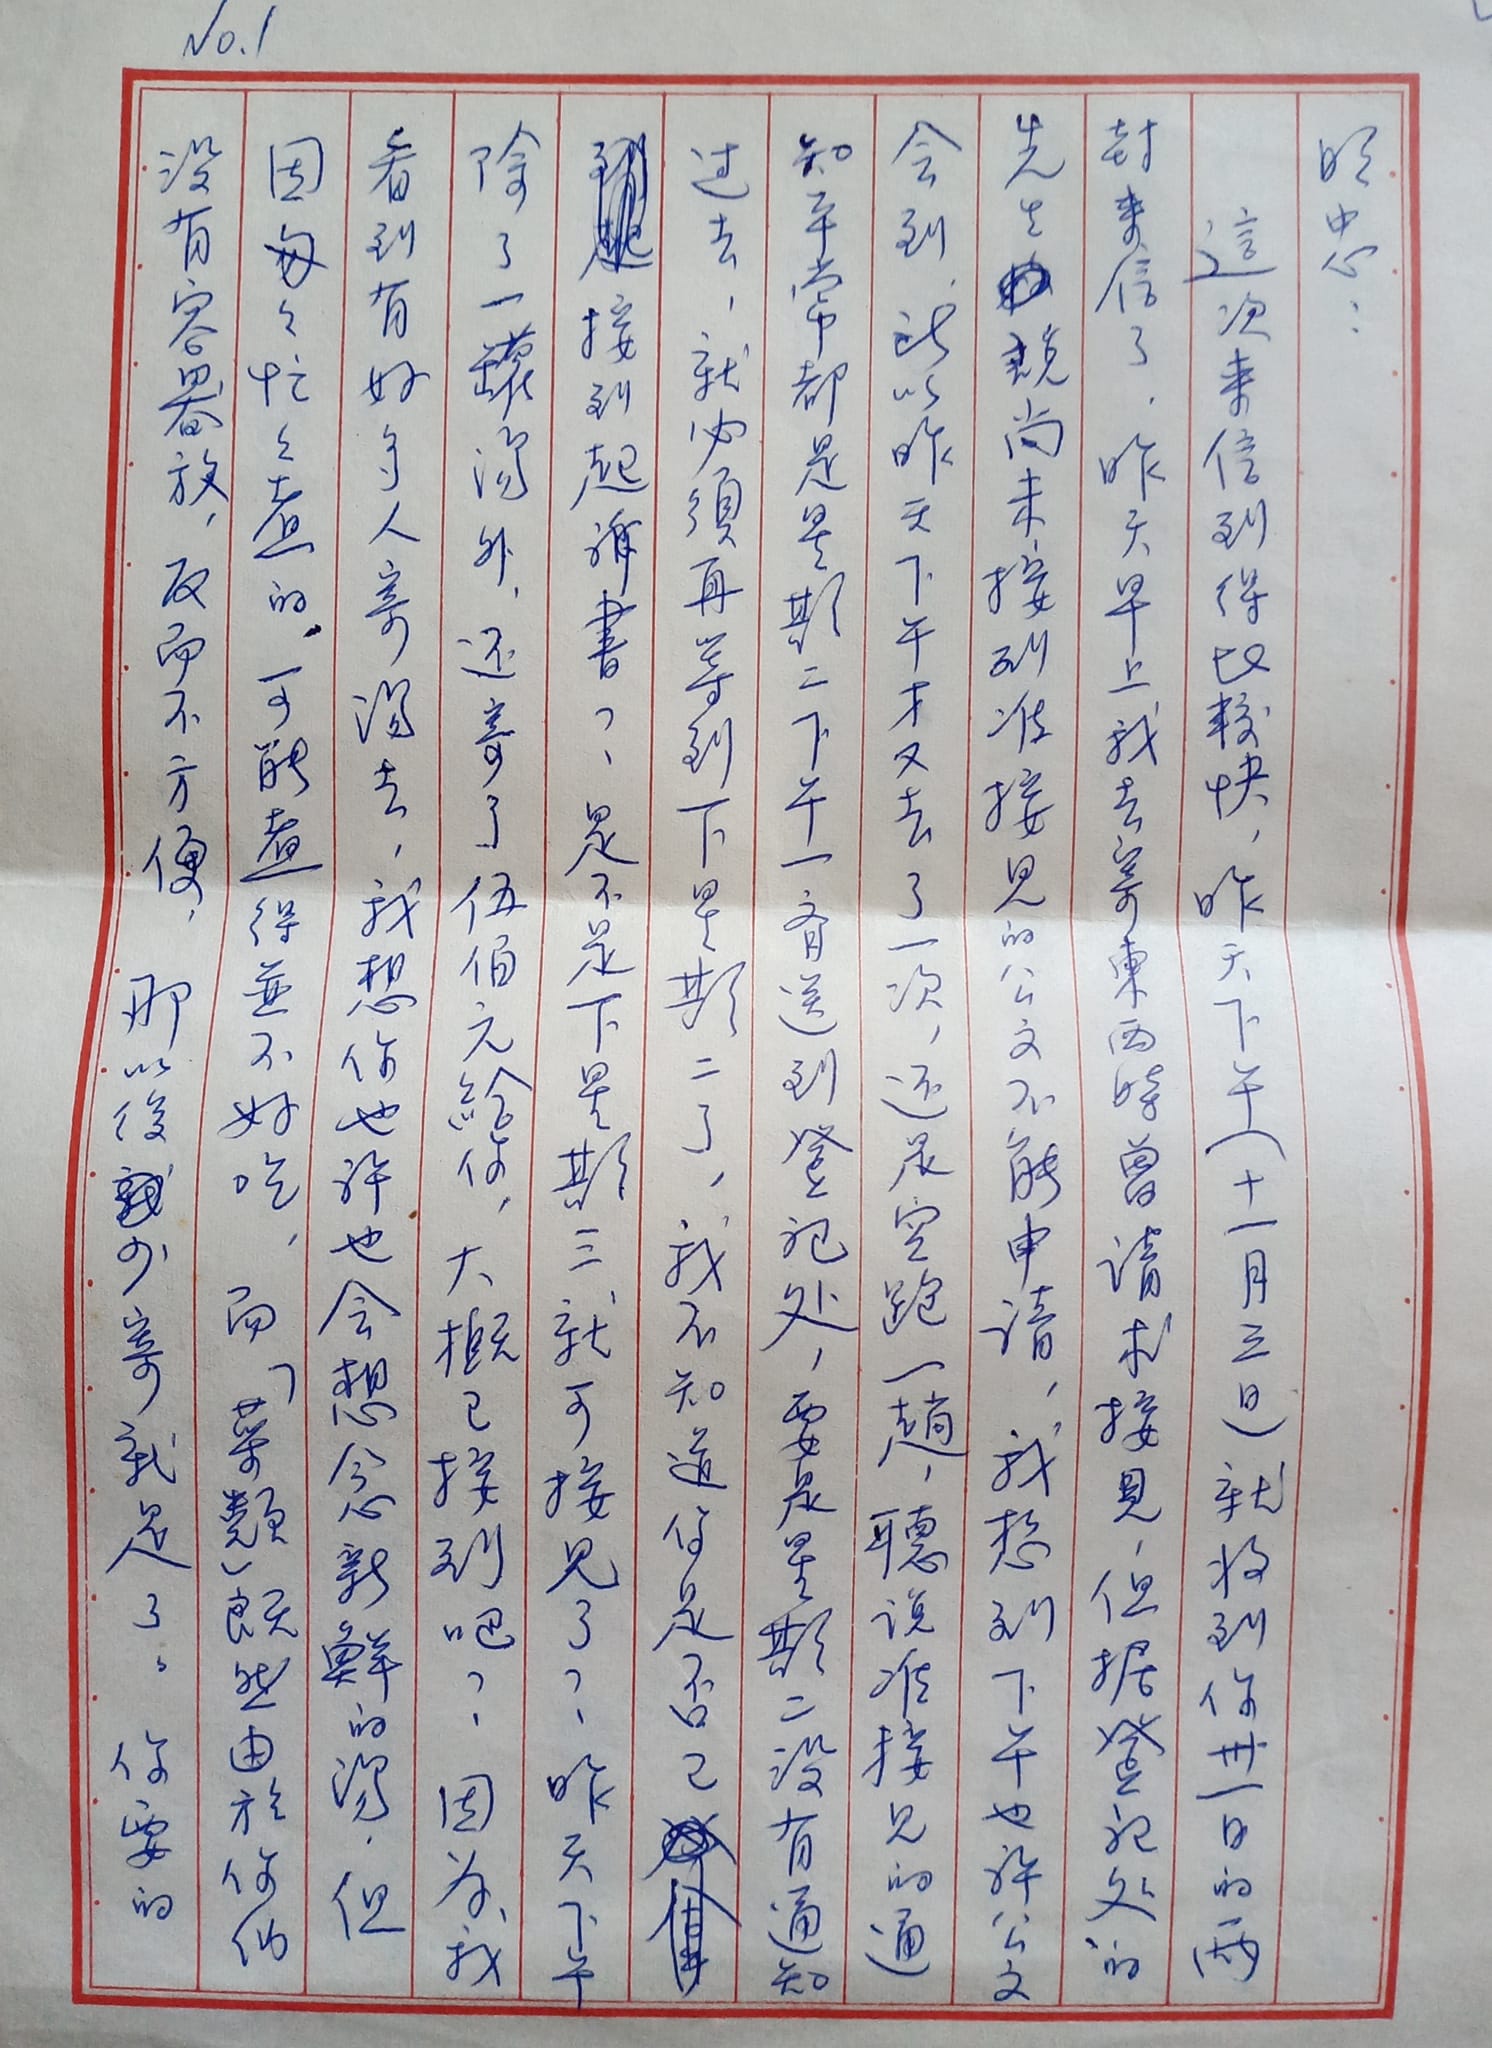 No.1
明忠：
這次來信到得比較快，昨天下午(十一月三日)就收到你卅一日的兩
封来信了．昨天早上我去寄東西時曾請求接見，但据登記处的
先生說尚未接到准接見的公文不能申請，我想到下午也許公文
会到．所以昨天下午才又去了一次，还是空跑一趟，聽说准接見的通
知平常都是星期二下午一齊送到登記处，要是星期二没有通知
过去，就必須再等到下星期二了，我不知道你是否已
接到起訴書？，是不是下星期三就可接見了？，昨天下午
除了一罐湯外，还寄了伍佰元給你，大概已接到吧？，因为我
看到有好多人寄湯去，我想你也許也会想念新鮮的湯．但
因匆々忙々煮的．可能煮得並不好吃，而「菜類」既然由於你们
没有容器放，反而不方便，那以後就少寄就是了。你要的